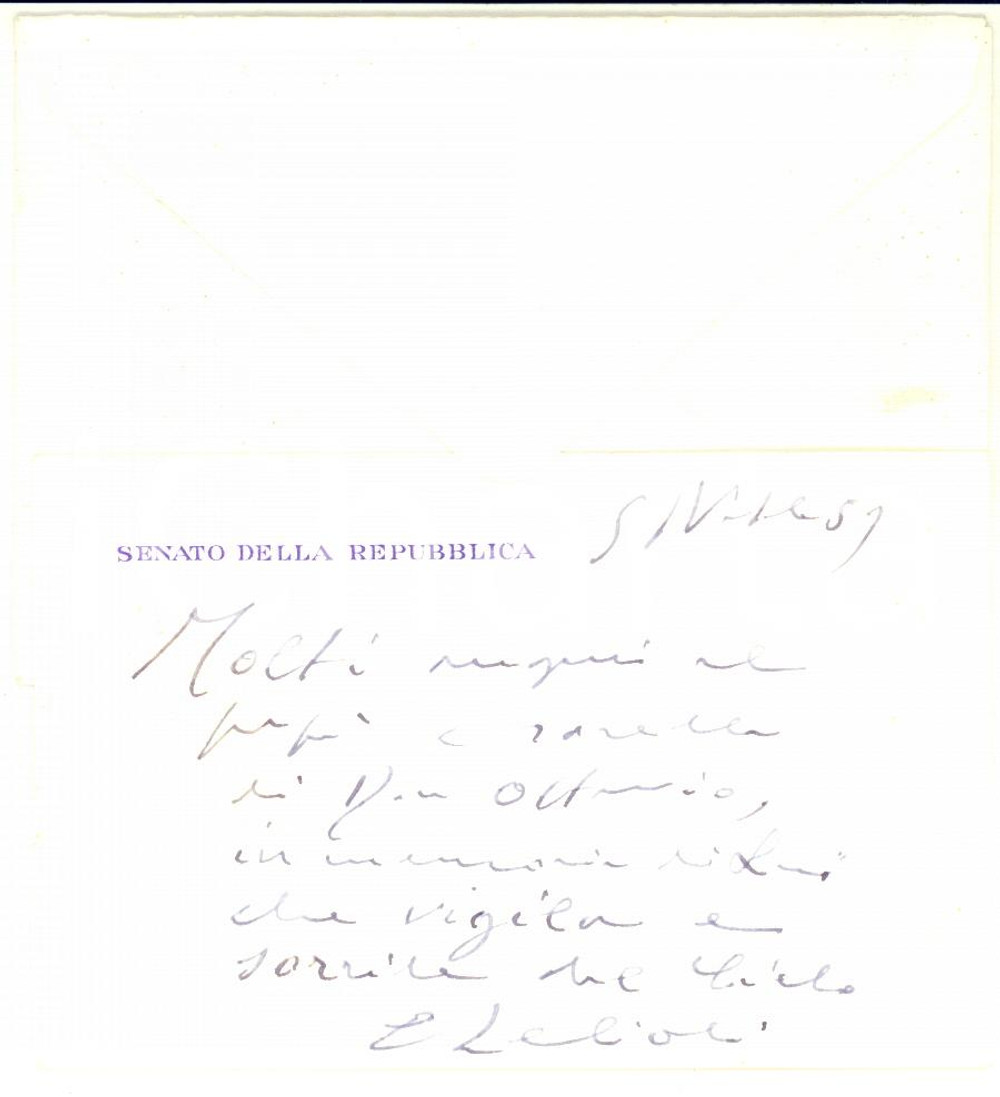 SENATO DELLA REPUBBLICA
Molti auguri al
papà e sorella
di Don Ottavio,
in memoria di Lui
che vigila e
sorride dal Cielo